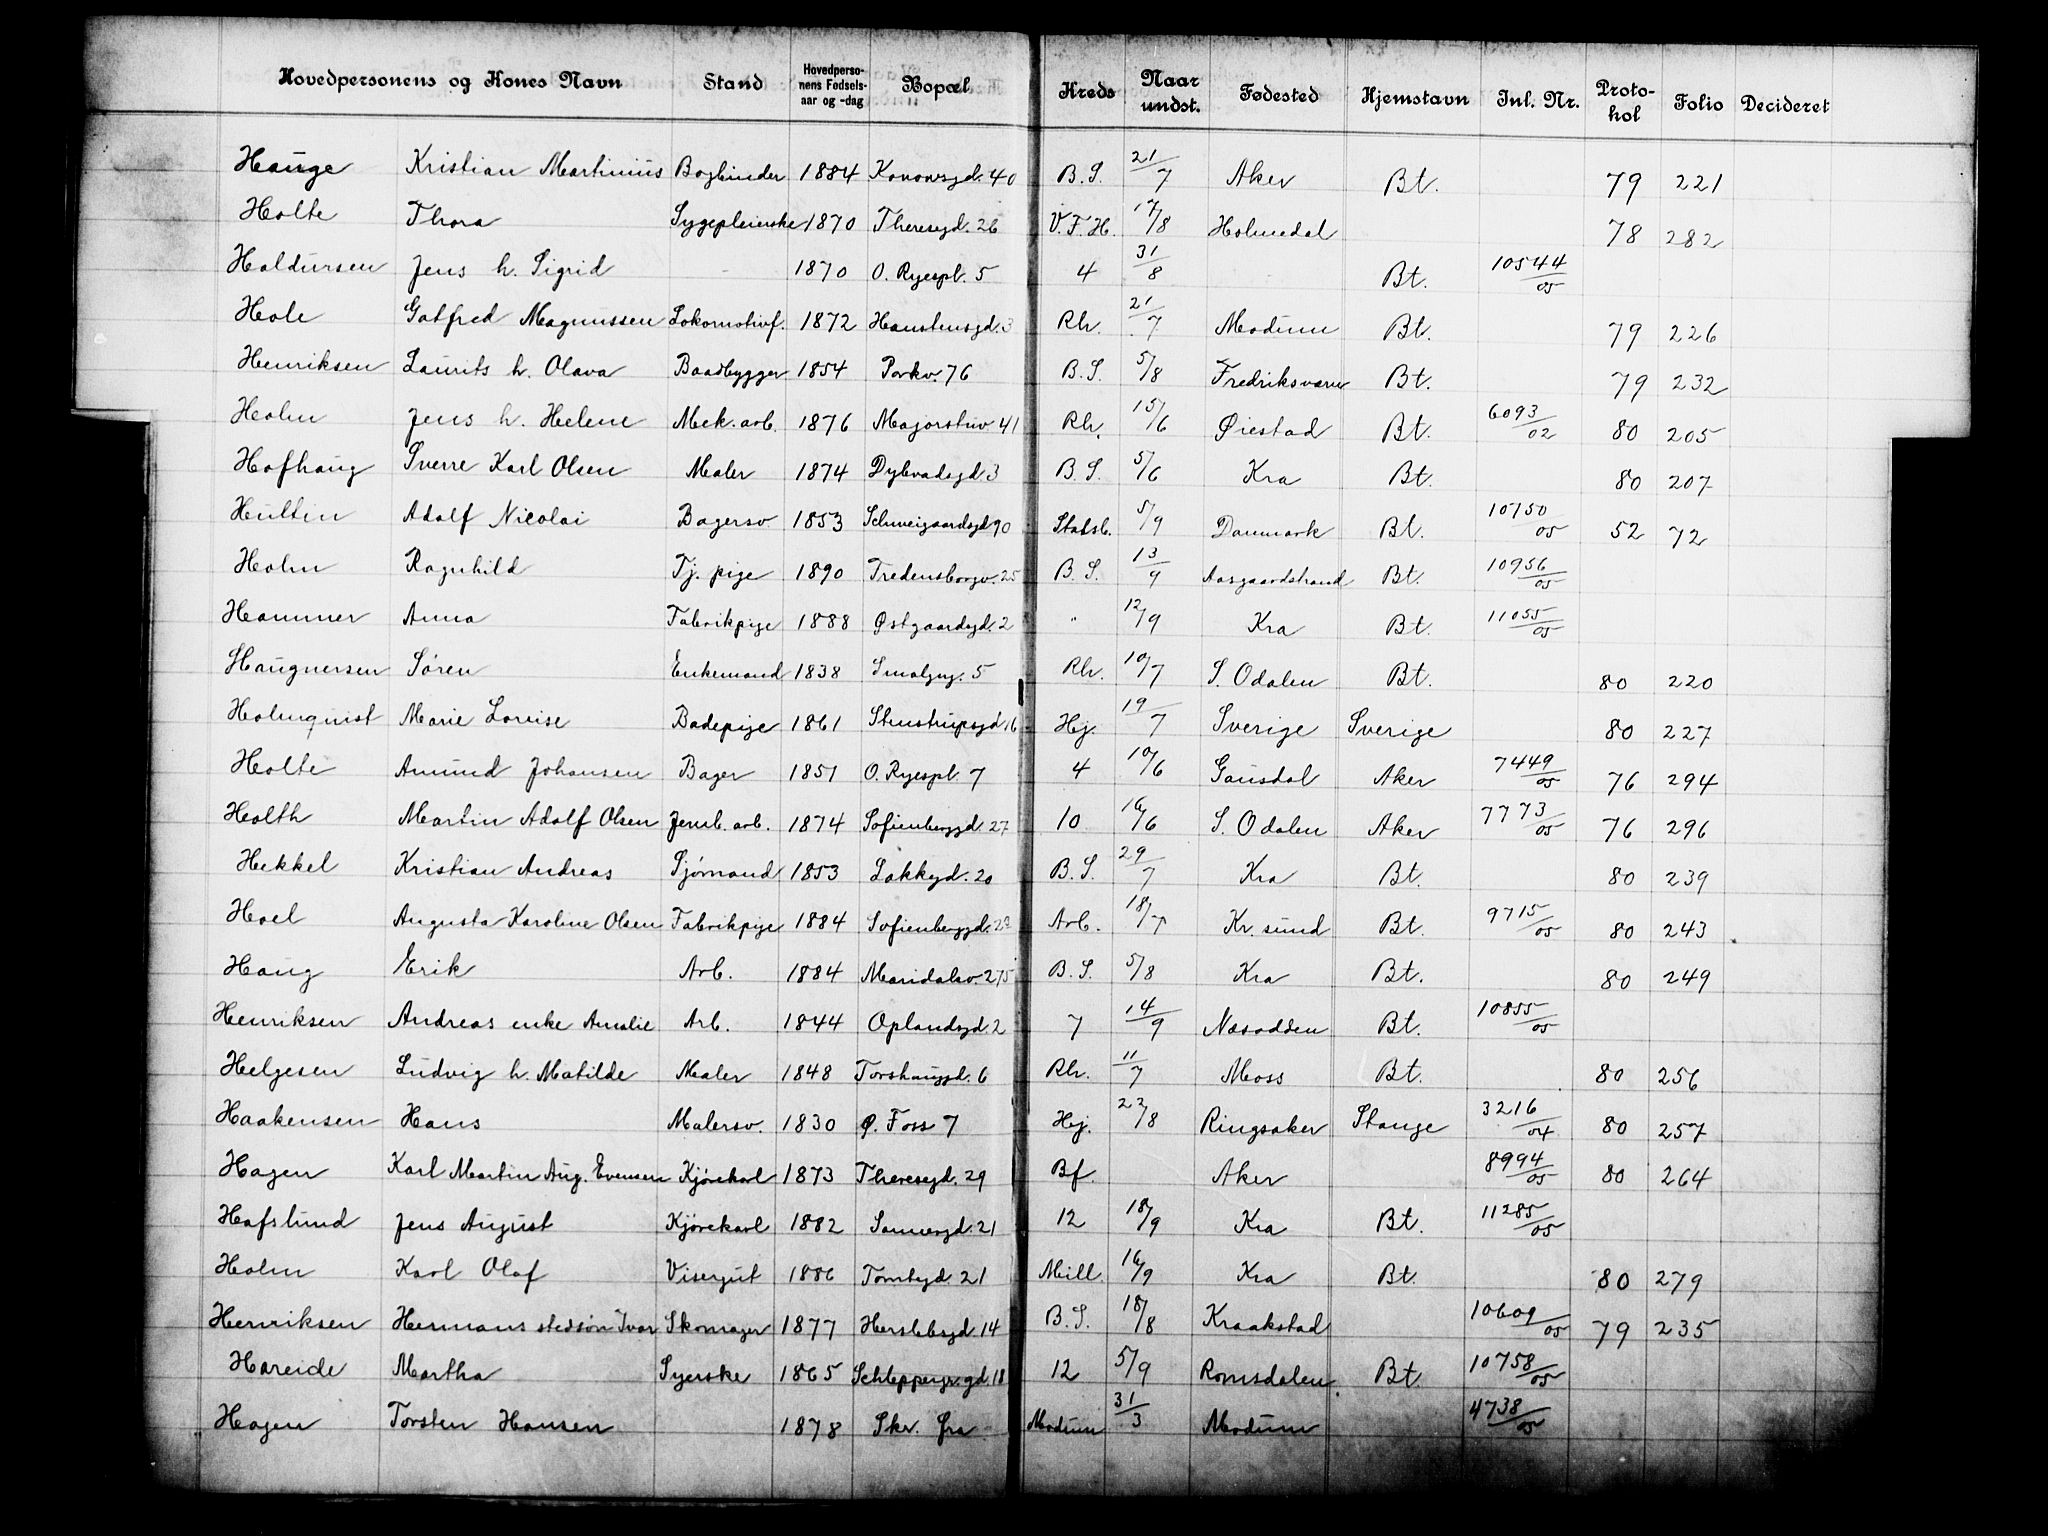 Hovedpersonens og Kones Navn Stand Hovedpersonens Fødselsaar og -dag Bopæl Kreds Naar undst. Fødested Hjemstavn Inl. Nr. Protokol Folio Decideret
Hauge Kristian Martinius Bogbinder 1884 Konowsgd. 40 B.S. 21/7 Aker Bt. 79 221
Holte Thora Sygepleierske 1870 Theresegd. 26 V.F.H. 17/8 Holmedal 78 282
Haldursen Jens h. Sigrid 1870 O. Ryespl. 5 4 31/8 Bt. 10544/05
Hole Gotfred Magnussen Lokomotivf. 1872 Hanstensgd. 3 Rh. 21/7 Modum Bt. 79 226
Henriksen Laurits h. Olava Baadbygger 1854 Parkv. 76 B.S. 5/8 Fredriksværn Bt. 79 232
Holm Jens h. Helene Mek. arb. 1876 Majorstuv 41 Rh. 15/6 Øiestad Bt. 6093/02 80 205
Hofhaug Sverre Karl Olsen Maler 1874 Dybvadsgd 3 B.S. 5/6 Kra Bt. 80 207
Hultin Adolf Nicolai Bagersv. 1853 Schweigaardsgd 90 Statsb. 5/9 Danmark Bt. 10750/05 52 72
Holm Ragnhild Tj. pige 1890 Fredensborgv. 25 B.S. 13/9 Aasgaardstrand Bt. 10956/05
Hammer Anna Fabrikpige 1888 Østgaardsgd. 2 " 12/9 Kra Bt. 11055/05
Haugnersen Søren Enkemand 1838 Smalgng. 5 Rh. 10/7 S. Odalen Bt. 80 220
Holmquist Marie Lovise Badepige 1861 Stenstrupsgd 16 Hj. 19/7 Sverige Sverige 80 227
Holte Amund Johansen Bager 1851 O. Ryespl. 7 4 10/6 Gausdal Aker 7449/05 76 294
Holth Martin Adolf Olsen Jernb. arb. 1874 Sofienberggd. 27 10 16/6 S. Odalen Aker 7773/05 76 296
Hekkel Kristian Andreas Sjømand 1853 Lakkgd. 20 B.S. 29/7 Kra Bt. 80 239
Hoel Augusta Karoline Olsen Fabrikpige 1884 Sofienberggd. Arb. 18/7 Kr. sund Bt. 9715/05 80 243
Haug Erik Arb. 1884 Maridalsv. 275 B.S. 5/8 Kra Bt. 80 249
Henriksen Andreas enke Amalie Arb. 1844 Oplandsgd. 2 7 14/9 Næsodden Bt. 10855/05
Helgesen Ludvig h. Matilde Maler 1848 Torshauggd. 6 Rh. 11/7 Moss Bt. 80 256
Haakensen Hans Malersv. 1830 Ø. Foss 7 Hj. 22/8 Ringsaker Stange 3216/04 80 257
Hagen Karl Martin Aug. Evensen Kjørekarl 1873 Theresegd. 29 Bf. Aker 8994/05 80 264
Hafslund Jens August Kjørekarl 1882 Sannergd. 21 12 18/9 Kra Bt. 11285/05
Holm Karl Olaf Visergut 1886 Tomtegd. 21 Mill. 16/9 Kra Bt. 80 279
Henriksen Hermans stedsøn Ivar Skomager 1877 Herslebsgd. 14 B.S. 18/8 Kraakstad 10609/05 79 235
Hareide Martha Syerske 1865 Schleppegr.gd. 18 12 5/9 Romsdalen Bt. 10758/05
Hagen Torsten Hansen 1878 Skr. fra Modum 31/3 Modum 4738/05